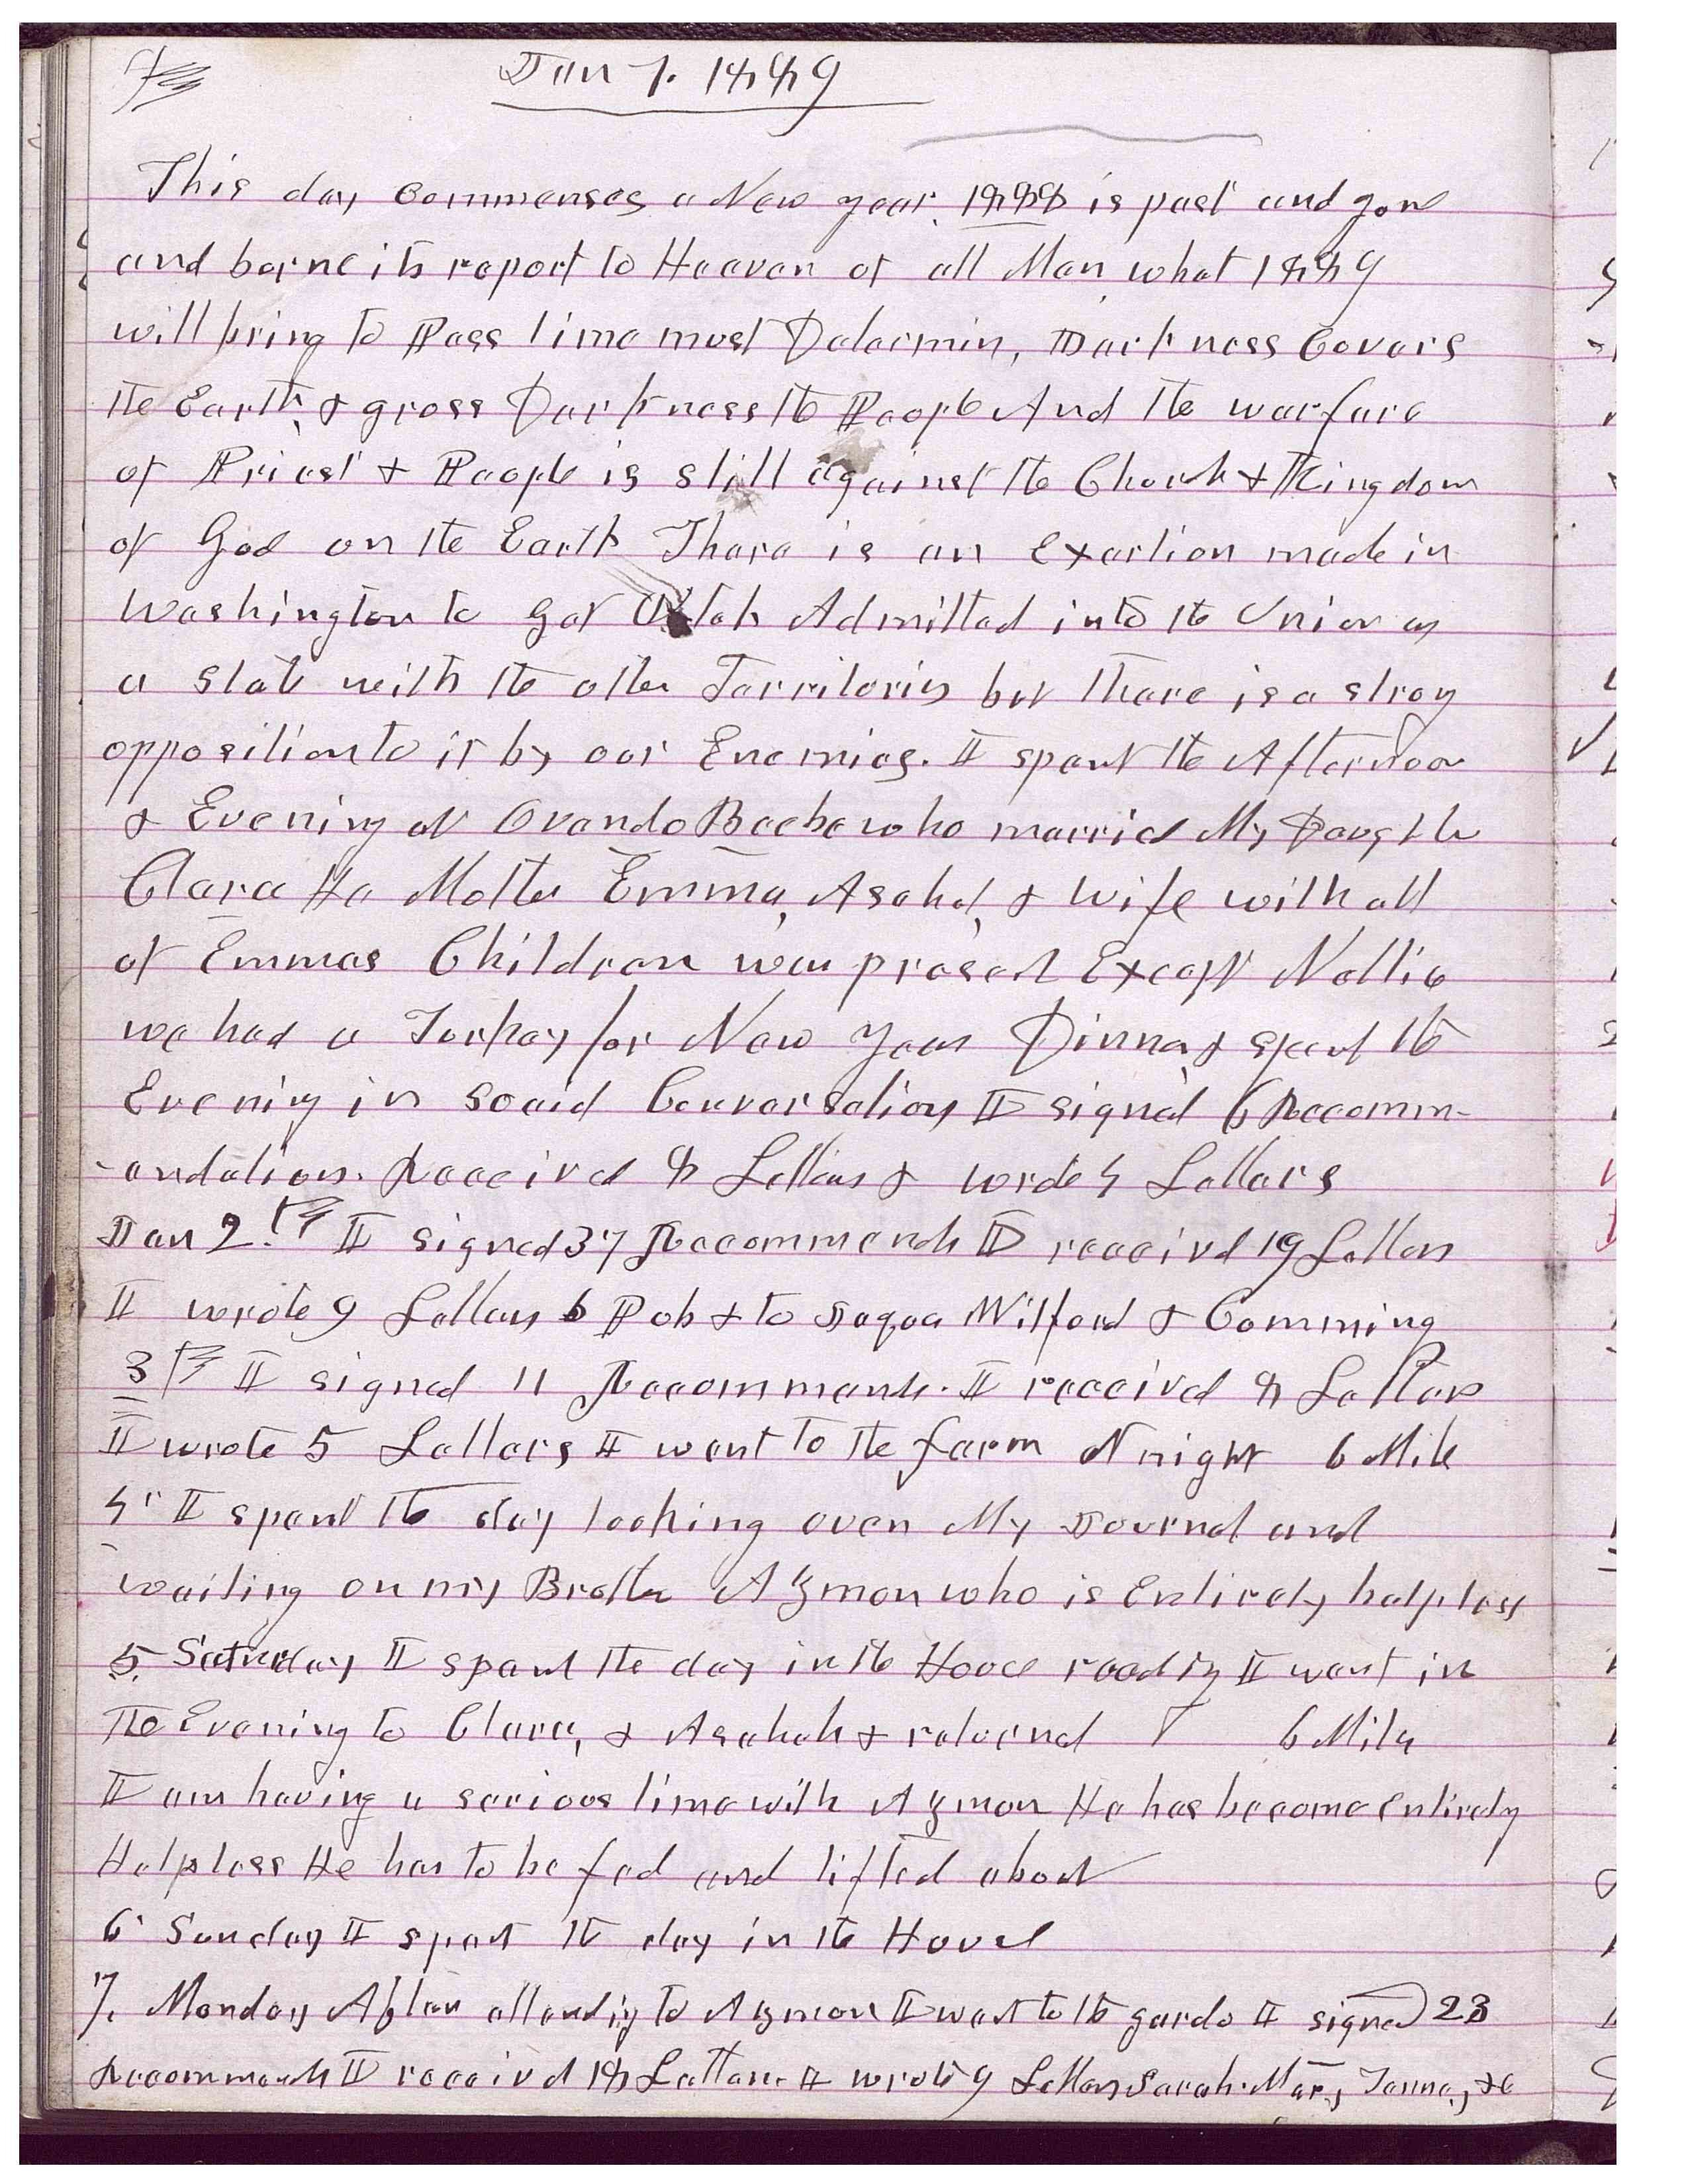 Jan 1. 1889
This day Commenses a New year. 1888 is past and gone
and borne its report to Heaven of all Men what 1889
will bring to Pass time must Determin, Darkness Covers
the Earth, & gross Darkness the People And the warfare
of Priest & People is still against the Church & Kingdom
of God on the Earth There is an Exertion made in
Washington to get Utah Admitted into the Union as
a State with the other Territories but there is a strong
opposition to it by our Enemies. I spent the Afternoon
& Evening at Ovando Beebe who married My Daughter
Clara He Mother Emma, Asahel, & wife with all
of Emmas Children were present Except Nellie
we had a Turkey for New Years Dinner & spent the
Evening in Social Conversation I signed 6 Recomm-
-endations. Received 8 Letters & wrote 4 Letters
Jan 2nd I signed 37 Recommends I received 19 Letters
I wrote 9 Letters to Pub & to Jaques Wilford & Comming
3rd I signed 11 Recommends. I received 8 Letters
I wrote 5 Letters I went to the farm At night 6 Mile
4 I spent the day looking over My Journal and
waiting on my Brother Azmon who is Entirely helpless
5. Saturday I spent the day in the House reading I went in
the Evening to Clara, & Asahels & returned 6 Mile
I am having a serious time with Azmon He has become entirely
Helpless He has to be fed and lifted about
6 Sunday I spent the day in the House
7. Monday After attending to Azmon I went to the gardo I signed 23
Recommends I received 18 Letters I wrote 9 Letters Sarah. Mary, &c